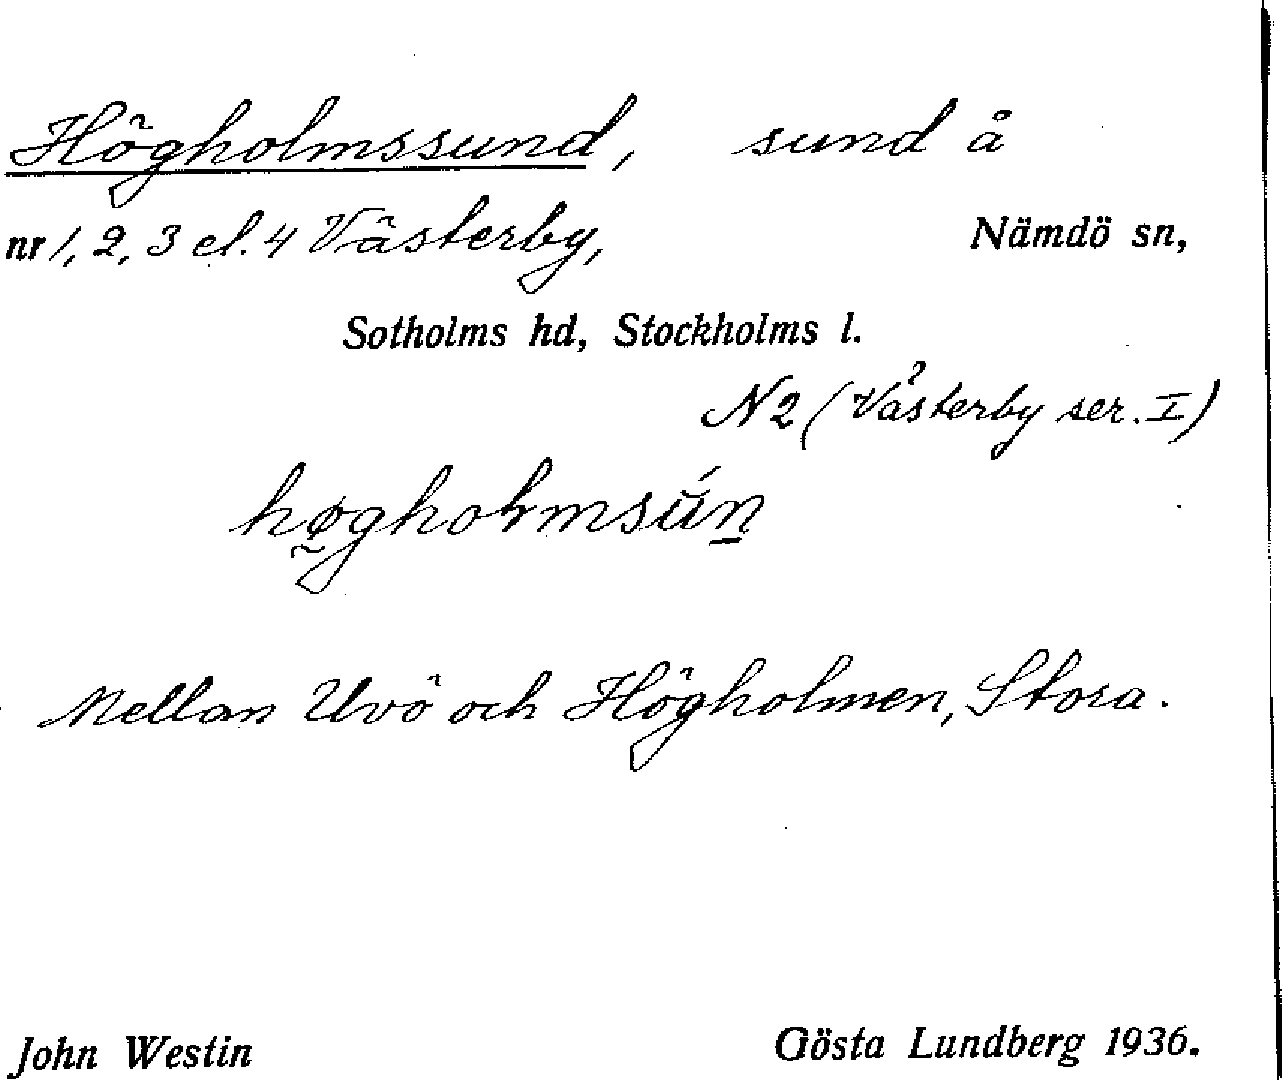 Högholmssund, sund å
nr 1, 2, 3 el. 4 Västerby, Nämdö sn,
Sotholms hd, Stockholms l.
N2 (Västerby ser. I)
høgholmsún
Mellan Uvö och Högholmen, Stora.
John Westin Gösta Lundberg 1936.